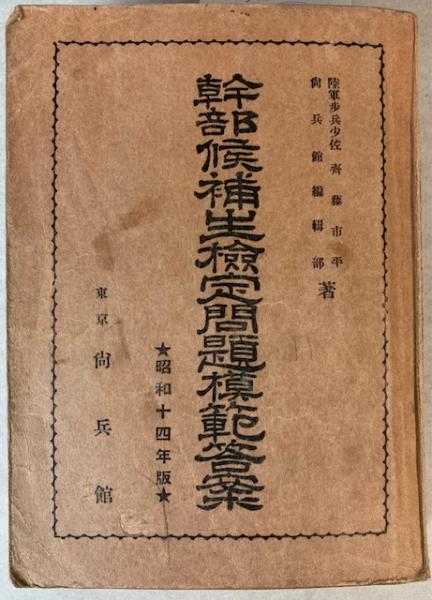 陸軍步兵少佐 齊藤市平
尙兵館編輯部 著
幹部候補生檢定問題模範答案
★昭和十四年版★
東京 尙兵館